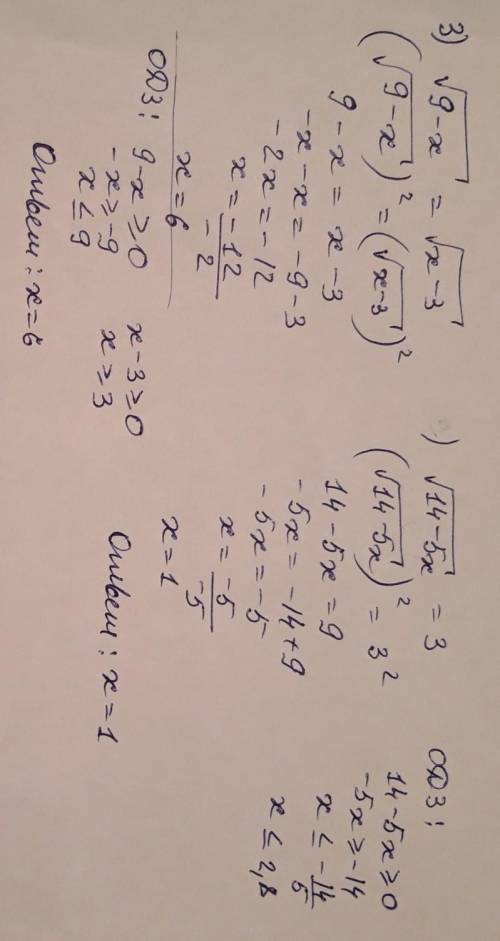 3) √9-x = √x-3
(√9-x)² = (√x-3)²
9-x = x-3
-x-x = -9-3
-2x = -12
x = -12/-2
x = 6
ОДЗ: 9-x ≥ 0
-x ≥ -9
x ≤ 9
x-3 ≥ 0
x ≥ 3
Ответ: x=6
) √14-5x = 3
(√14-5x)² = 3²
14-5x = 9
-5x = -14+9
-5x = -5
x = -5/-5
x = 1
Ответ: x = 1
ОДЗ:
14-5x ≥ 0
-5x ≥ -14
x ≤ -14/5
x ≤ 2,8